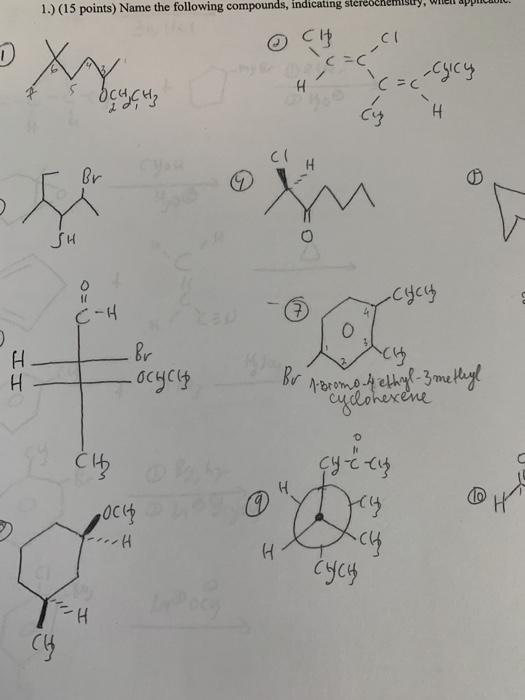 1.) (15 points) Name the following compounds, indicating stereochemistry, when applicable.
1
7 6 5 4 3
OCH2CH3
2 1
2
CH3 Cl
C=C
H C=C CH2CH3
CH3 H
Br
SH
4
Cl H
O
O
C-H
H Br
H OCH2CH3
CH3
7
CH2CH3
4
O
3
CH3
1 2
Br
1-bromo-4-ethyl-3-methyl
cyclohexene
OCH3
H
H
CH3
9
O
CH2-C-CH3
H CH3
H CH3
CH2CH3
10
H